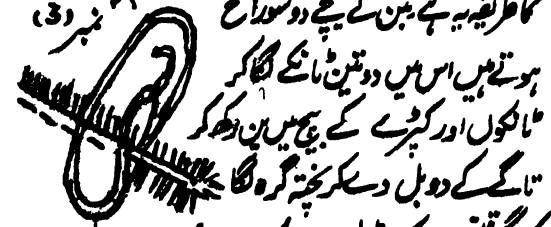 کا طریقہ یہ ہے پن کے نیچے دو سوراخ
نمبر (3)
ہوتے ہیں اس میں دو تین ٹانکے لگا کر
ٹانکوں اور کپڑے کے بیچ میں پن رکھ کر
تاگے کے دو بل دے کر پختہ گرہ لگا